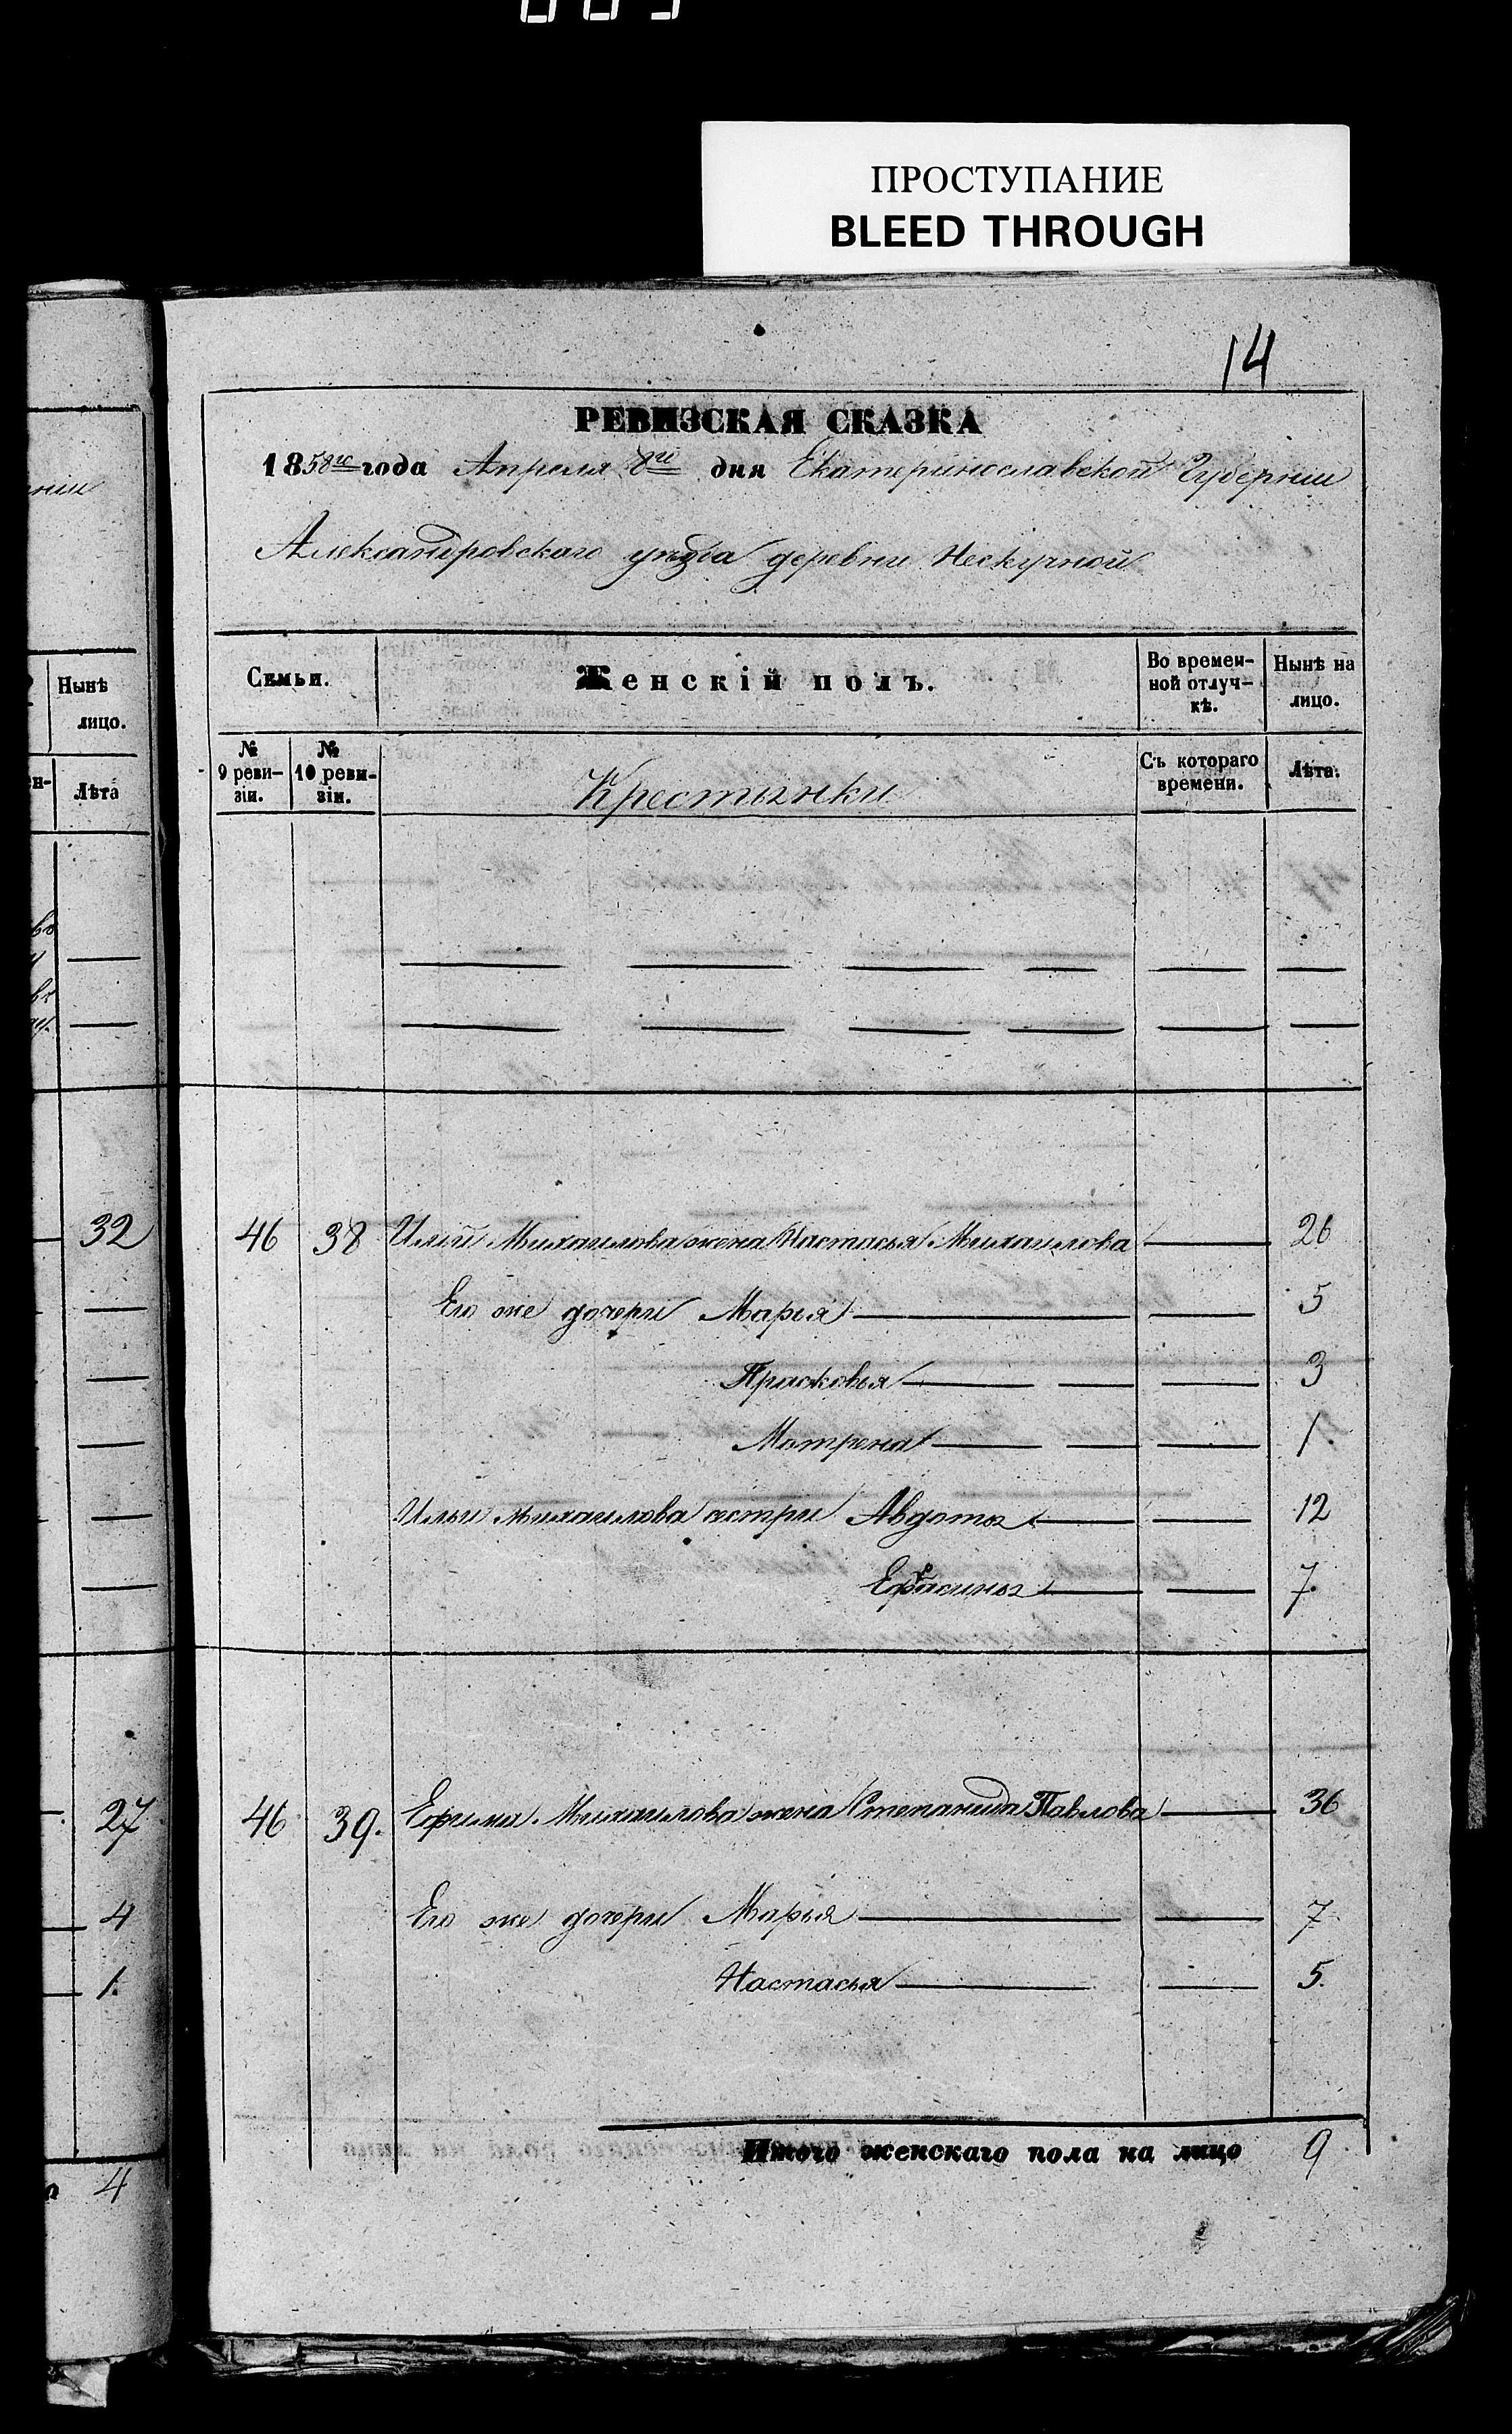 ПРОСТУПАНИЕ
BLEED THROUGH
14
РЕВИЗСКАЯ СКАЗКА
1858го года Апреля 8го дня Екатеринославской Губернии
Александровскаго уезда деревни Нескучной
Семьи. Женскій полъ. Во времен-ной отлуч-кѣ. Нынѣ на лицо.
№ 9 реви-зіи. № 10 реви-зіи. Крестьянки Съ котораго времени. Лѣта.
46 38 Ильи Михаилова жена Настасья Михаилова 26
Его же дочери Марья 5
Прасковья 3
Мотрена 1.
Ильи Михаилова сестри Авдотья 12
Ефрасинья 7.
46 39. Ефима Михаилова жена Степанида Павлова 36
Его же дочери Марья 7
Настасья 5.
Итого женскаго пола на лицо 9
Нынѣ
лицо.
Лѣта
32
27
4
1.
4